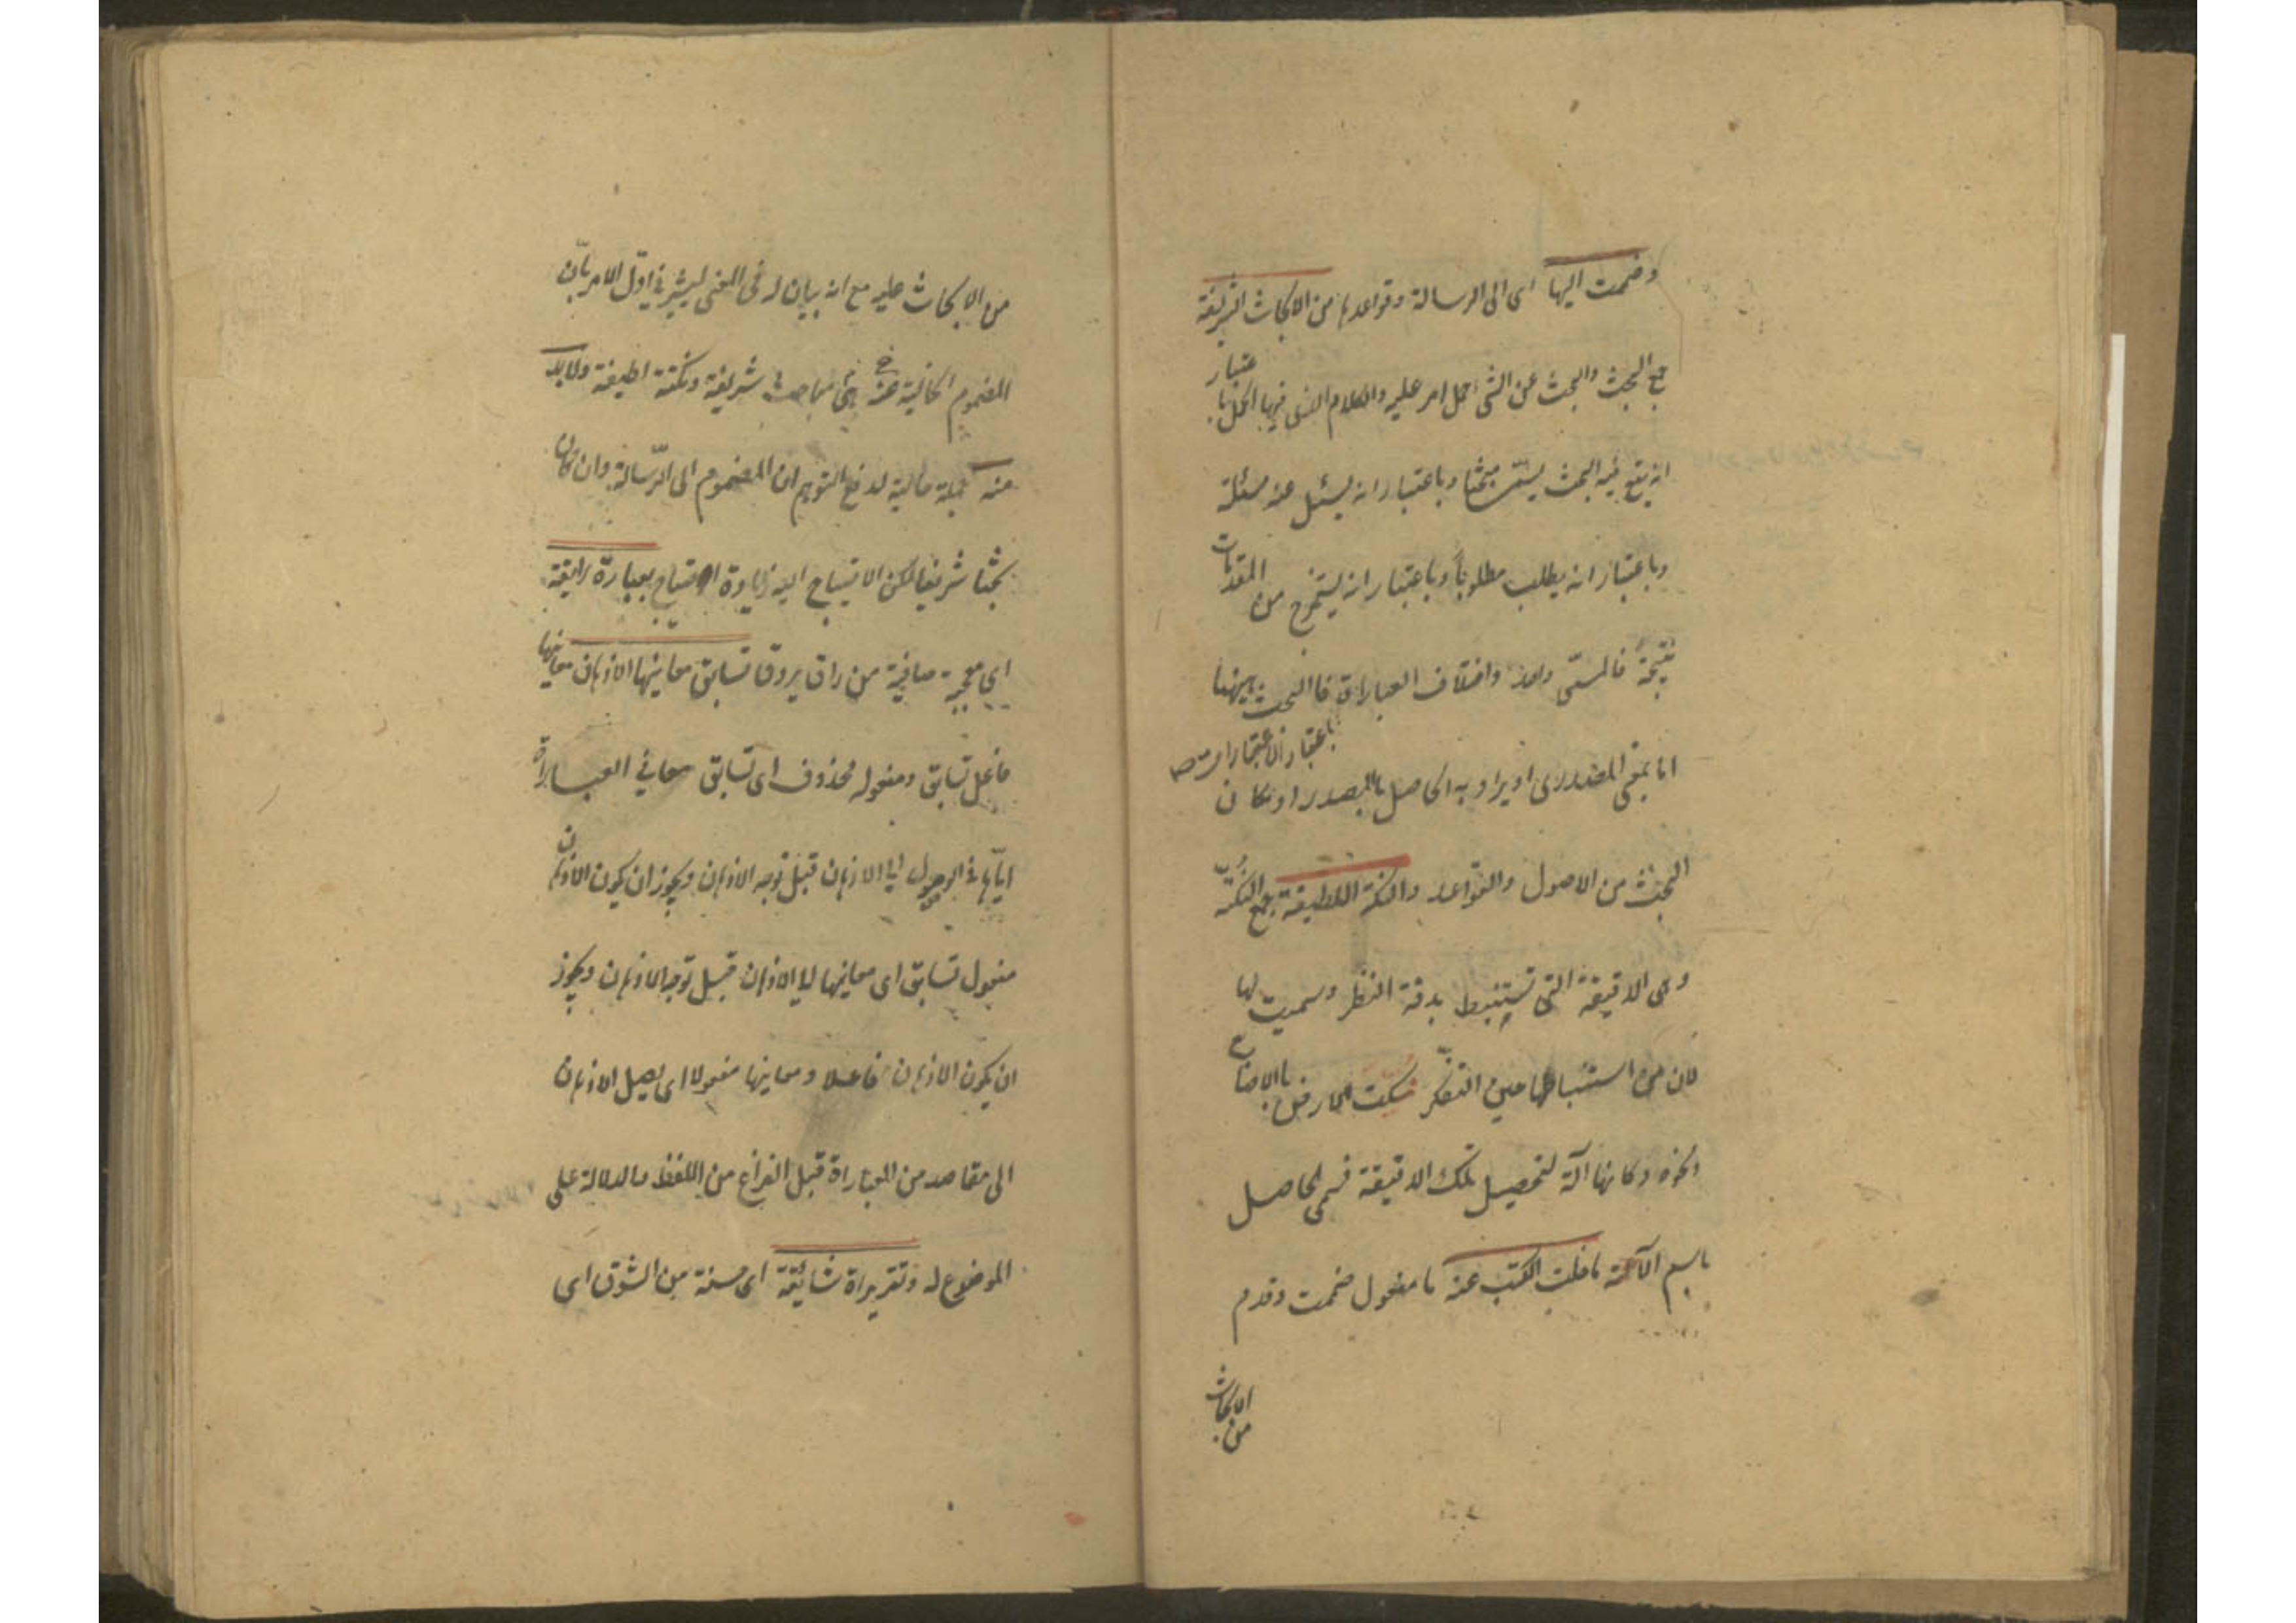 وضممت اليها اى الى الرسالة وقواعدها من الابحاث الشريفة
جمع البحث والبحث عن الشئ حمل امر عليه والكلام الذى فيها الحمل با
عتبار
انه يقع فيه البحث يسمّى مبحثا وباعتبار انه يسئل عنه مسئلة
وباعتبار انه يطلب مطلوباً وباعتبار انه يستخرج من المقدمات
نتيجةً فالمسمّى واحد واختلاف العبارات فالبحث ههنا
باعتبار الاعتبارات صح
اما بمعنى المصدرى او يراد به الحاصل بالمصدر او كان
البحث من الاصول والقواعد والنكتة اللطيفة جمع النكتة
وهى الدقيقة التى تستنبط بدقة النظر وسميت لها
لان من استنباطها حين التفكر نكت الارض بالاصابع
ونحوه وكانها آلة لتحصيل تلك الدقيقة فسمى الحاصل
باسم الآلة ما خلت الكتب عنه ما مفعول ضممت وقدم
من الابحاث
من الابحاث عليه مع انه بيان له فى المعنى ليشير فى اوّل الامر بان
المضموم مباحث شريفة ونكتة لطيفة ولابد
منه جملة حالية لدفع التوهم ان المضموم الى الرّسالة وان كان
بحثا شريفا لكن الاحتياج اليه زيادة احتياج بعبارة رايقة
اى معجبة صافية من راق يروق تسابق معانيها الاذهان معانيها
فاعل تسابق ومفعوله محذوف اى تسابق معانى العبارة
ايّاها فى الوصول الى الاذهان قبل توجه الاذهان ويجوز ان يكون الاذهان
مفعول تسابق اى معانيها الاذهان قبل توجه الاذهان ويجوز
ان يكون الاذهان فاعلا ومعانيها مفعولا اى يصل الاذهان
الى مقاصد من العباراة قبل الفراغ من اللفظ مالدلالة على
الموضوع له وتقريراة شايقة اى حسنة من الشوق اى